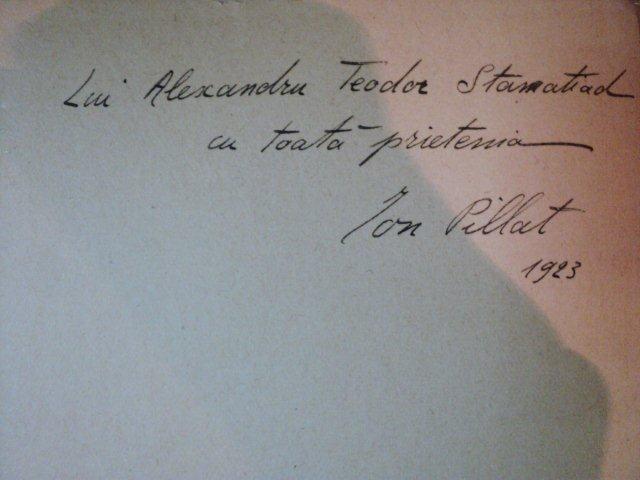 Lui Alexandru Teodor Stamatiad
cu toată prietenia
Ion Pillat
1923